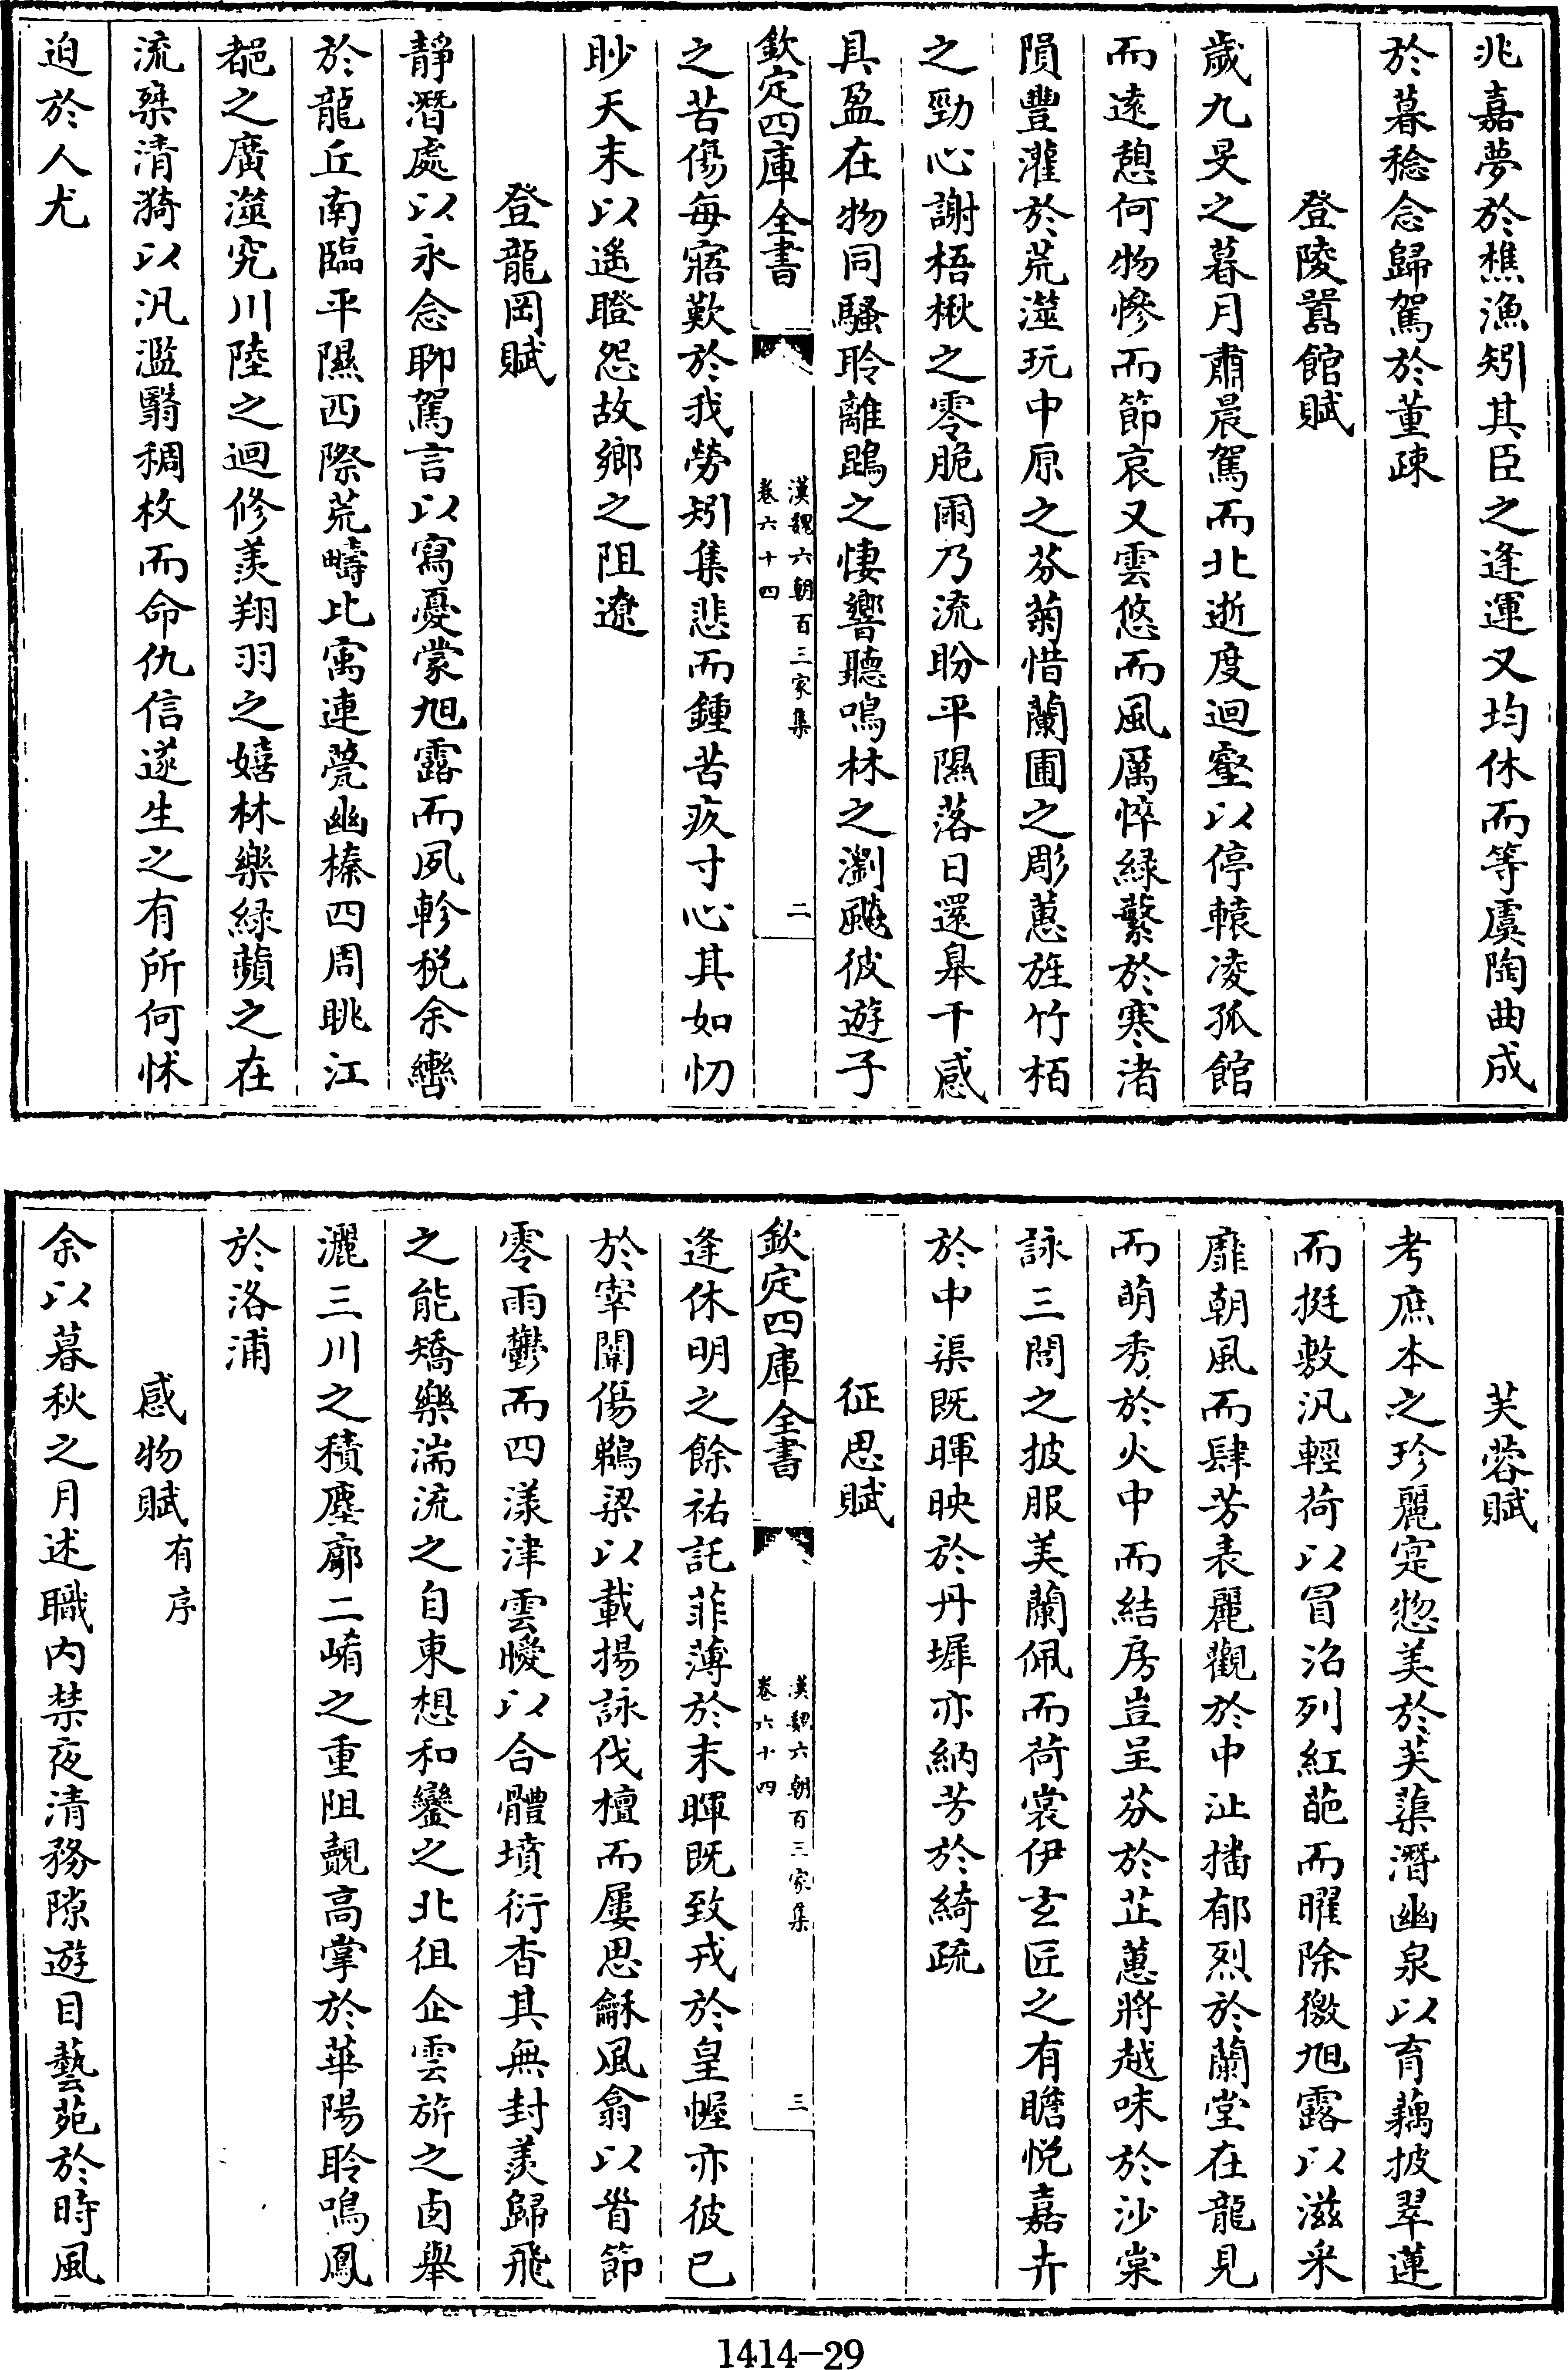 兆嘉夢於樵漁矧其臣之逢運又均休而等虞陶曲成
於暮稔念歸駕於董踈
登陵囂館賦
歲九旻之暮月肅晨駕而北逝度迴壑以停轅凌孤館
而遠憩何物慘而節哀又雲悠而風厲悴緑蘩於寒渚
隕豐灌於荒澨玩中原之芬菊惜蘭圃之彫蕙旌竹栢
之勁心謝梧楸之零脆爾乃流盼平隰落日還皋千感
具盈在物同騷聆離鵾之悽響聽鳴林之瀏飈彼遊子
欽定四庫全書
漢魏六朝百三家集
卷六十四
二
之苦傷每寤歎於我勞矧集悲而鍾苦疚寸心其如忉
眇天末以遥瞪怨故鄉之阻遼
登龍岡賦
靜潛處以永念聊駕言以寫憂蒙旭露而夙軫税余轡
於龍丘南臨平隰西際荒疇比㝢連甍幽榛四周眺江
㠶之廣澨究川陸之迴修羨翔羽之嬉林樂緑蘋之在
流槩清漪以汎濫翳稠枚而命仇信遂生之有所何怵
迫於人尤
芙蓉賦
考庶本之珍麗寔惣美於芙蕖潛幽泉以育藕披翠蓮
而挺敷汎輕荷以冒沼列紅葩而曜除徼旭露以滋采
靡朝風而肆芳表麗觀於中沚播郁烈於蘭堂在龍見
而萌秀於火中而結房豈呈芬於芷蕙將越味於沙棠
詠三閭之披服美蘭佩而荷裳伊玄匠之有瞻悦嘉卉
於中渠既暉映於丹墀亦納芳於綺疏
征思賦
欽定四庫全書
漢魏六朝百三家集
卷六十四
三
逢休明之餘祐託菲薄於末暉既致戎於皇幄亦彼已
於宰闈傷鵜梁以載揚詠伐檀而屢思龢風翕以首節
零雨鬱而四漾津雲曖以合體墳衍杳其無封羨歸飛
之能矯樂湍流之自東想和鑾之北徂企雲旂之卤舉
灑三川之積塵廓二崤之重阻覿高掌於華陽聆鳴鳳
於洛浦
感物賦有序
余以暮秋之月述職内禁夜清務隙遊目藝苑於時風
1414-29